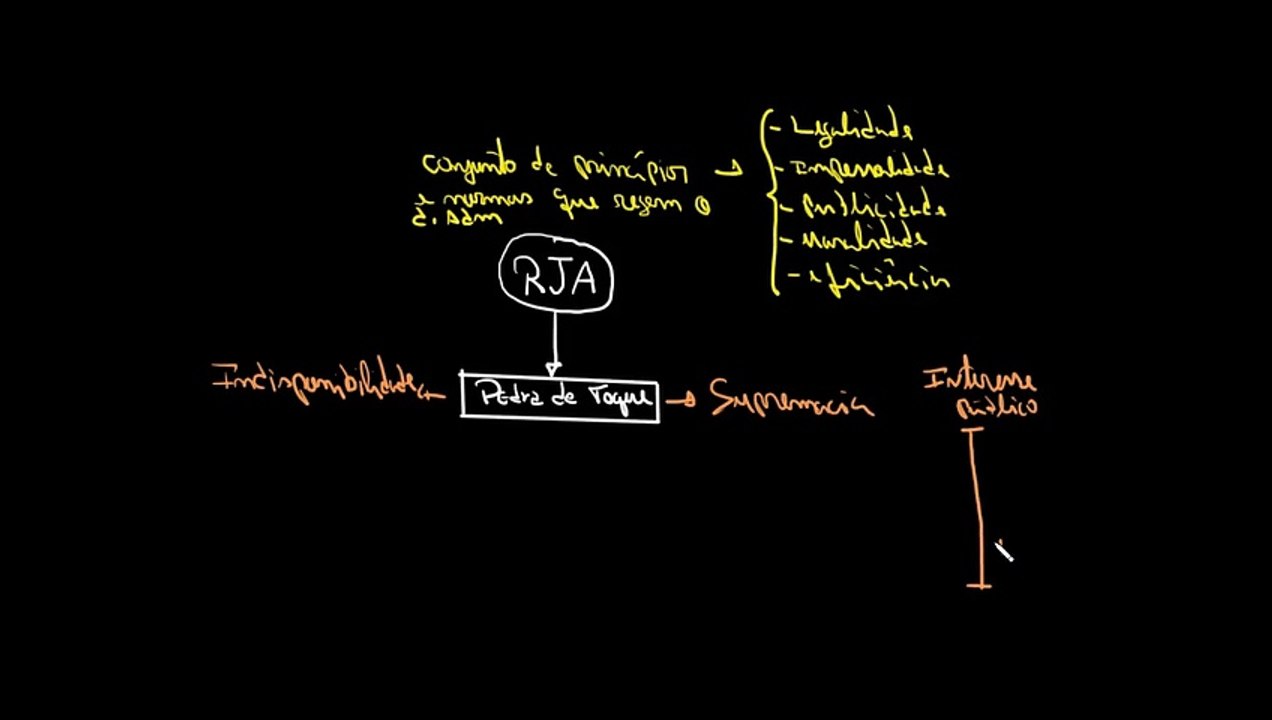 conjunto de princípios →
e normas que regem o
d. Adm
- Legalidade
- Impessoalidade
- publicidade
- Moralidade
- eficiência
RJA
Indisponibilidade ← Pedra de Toque → Supremacia
Interesse
público